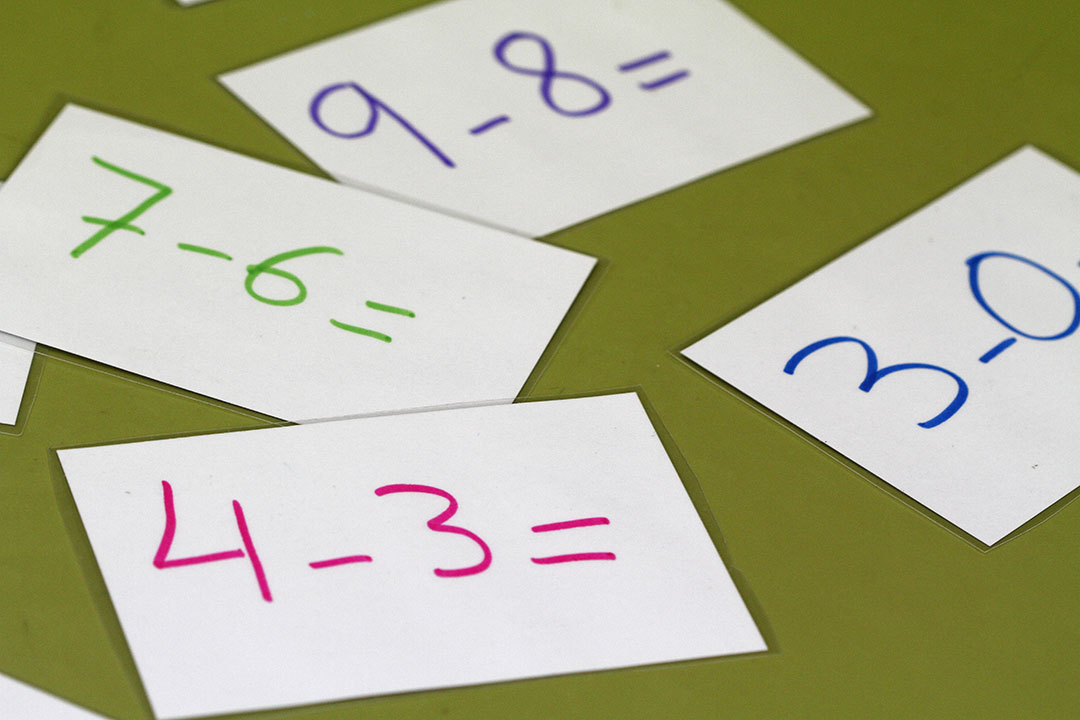 9-8=
7-6=
3-0
4-3=